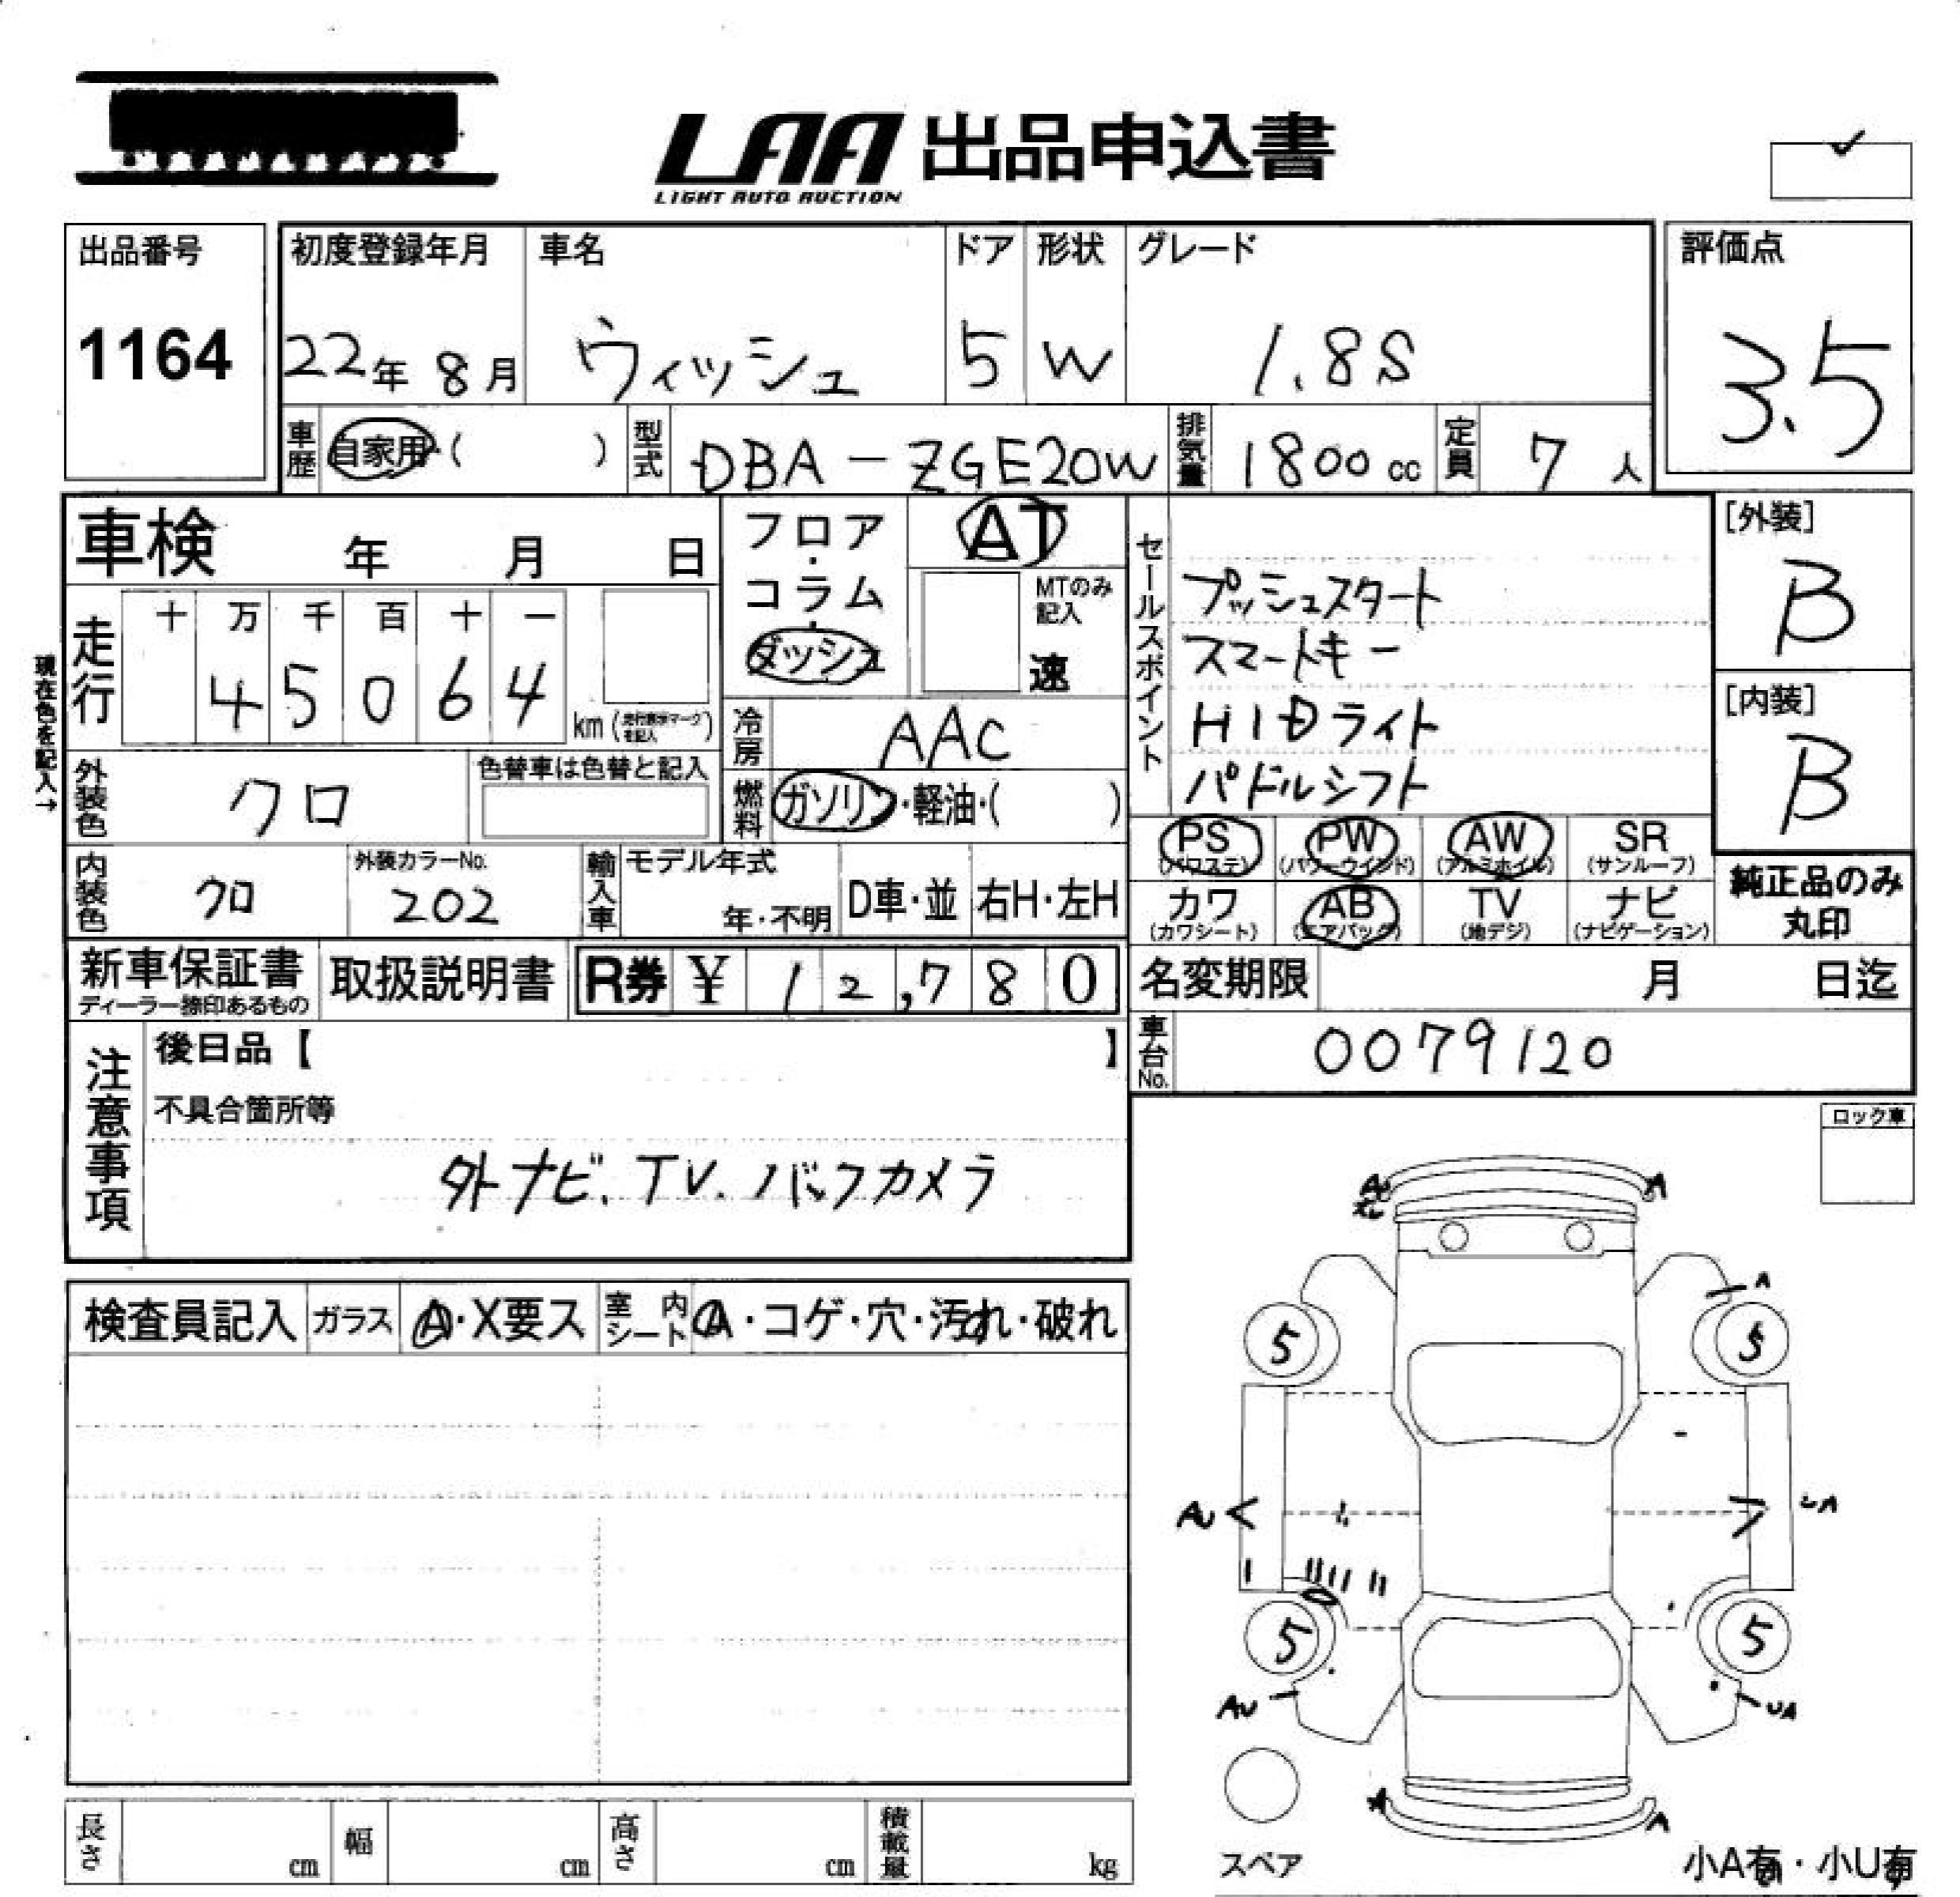 LAA 出品申込書
LIGHT AUTO AUCTION
出品番号
1164
初度登録年月
22年 8月
車名
ウィッシュ
ドア
5
形状
W
グレード
1.8S
評価点
3.5
車歴 自家用・( )
型式 DBA-ZGE20W
排気量 1800cc
定員 7人
車検 年 月 日
フロア・コラム・ダッシュ
AT
MTのみ記入
速
セールスポイント
プッシュスタート
スマートキー
HIDライト
パドルシフト
[外装]
B
[内装]
B
現在色を記入→
走行
十 万 千 百 十 一
4 5 0 6 4
km(走行表示マークを記入)
冷房 AAC
外装色 クロ
色替車は色替と記入
燃料 ガソリン・軽油・( )
PS (パワステ) PW (パワーウインド) AW (アルミホイル) SR (サンルーフ)
カワ (カワシート) AB (エアバック) TV (地デジ) ナビ (ナビゲーション)
純正品のみ丸印
内装色 クロ
外装カラーNo.
202
輸入車 モデル年式
年・不明 D車・並 右H・左H
新車保証書
ディーラー捺印あるもの
取扱説明書
R券 ¥ 12,780
名変期限 月 日迄
車台No. 0079120
注意事項
後日品【 】
不具合箇所等
外ナビ.TV.バックカメラ
ロック車
検査員記入 ガラス A・X要ス 室内シート A・コゲ・穴・汚れ・破れ
A
A
A
5
5
AU
UA
5
5
AU
UA
A
A
スペア
小A有・小U有
長さ cm 幅 cm 高さ cm 積載量 kg